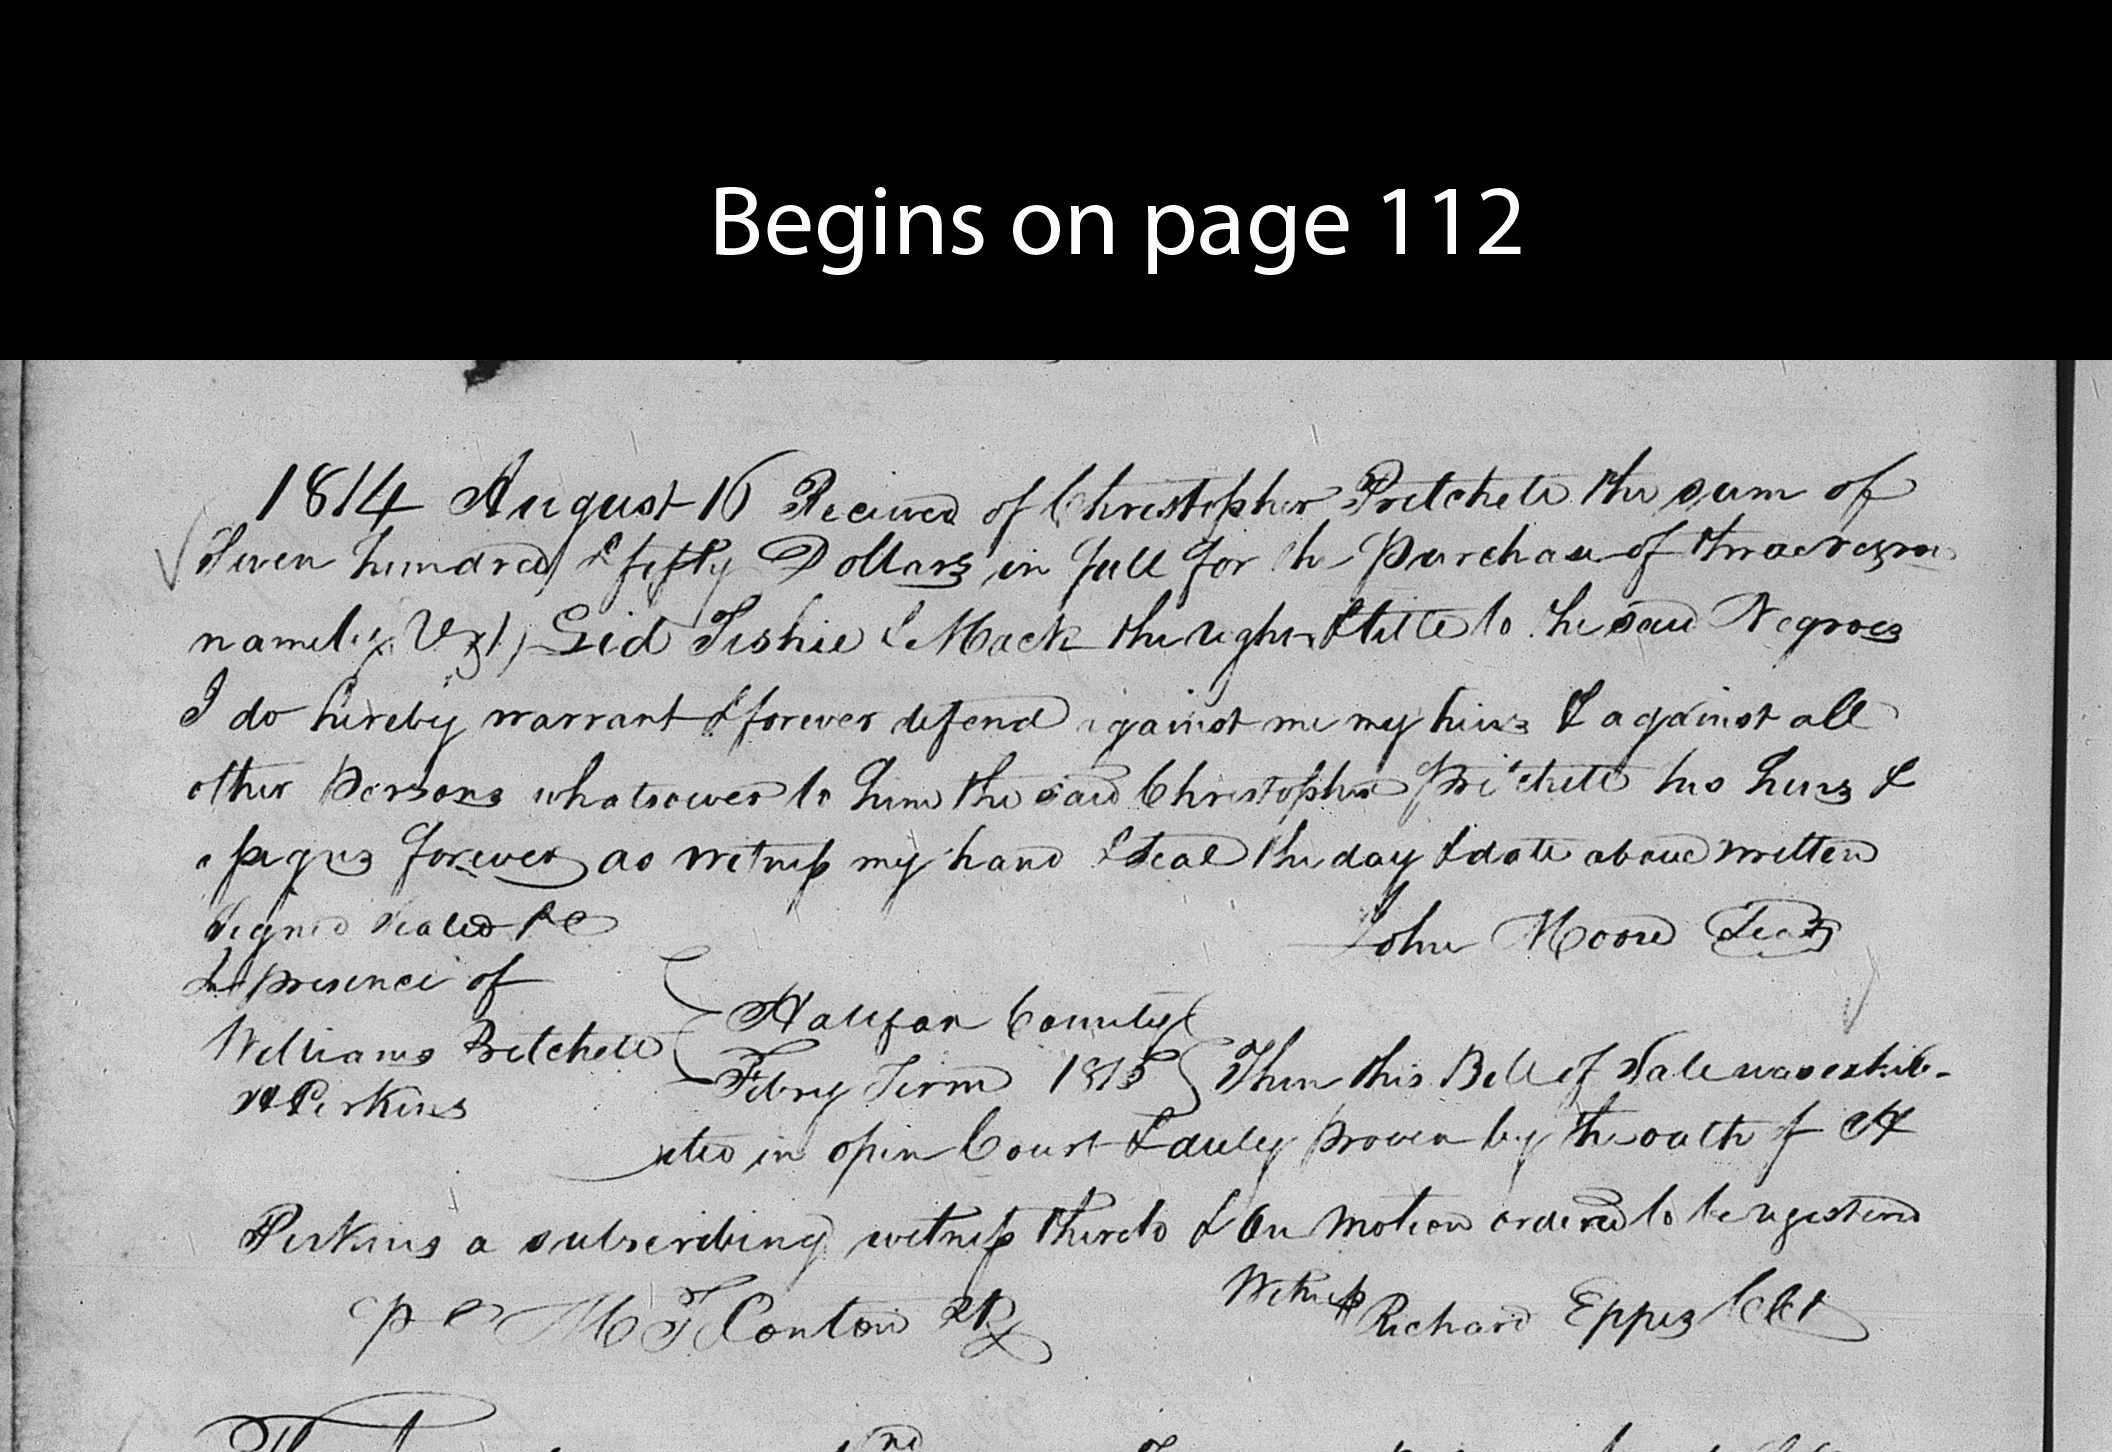 Begins on page 112
1814 August 16 Received of Christopher Pritchett the sum of
Seven hundred & fifty Dollars in full for the Purchase of three negroes
namely, Vizt, Sid Tishie & Mack the right & title to the said Negroes
I do hereby warrant & forever defend against me my heirs & against all
other Persons whatsoever to him the said Christopher Pritchett his heirs &
assigns forever as witness my hand & seal the day & date above written
Signed Sealed &c
John Moore Seal
In presence of
Williams Pritchett
A Perkins
Halifax County
Febry Term 1815
Then this Bill of Sale was exhib-
ited in open Court & duly proven by the oath of A
Perkins a subscribing witness thereto & On Motion ordered to be registered
Witness Richard Eppes Clk